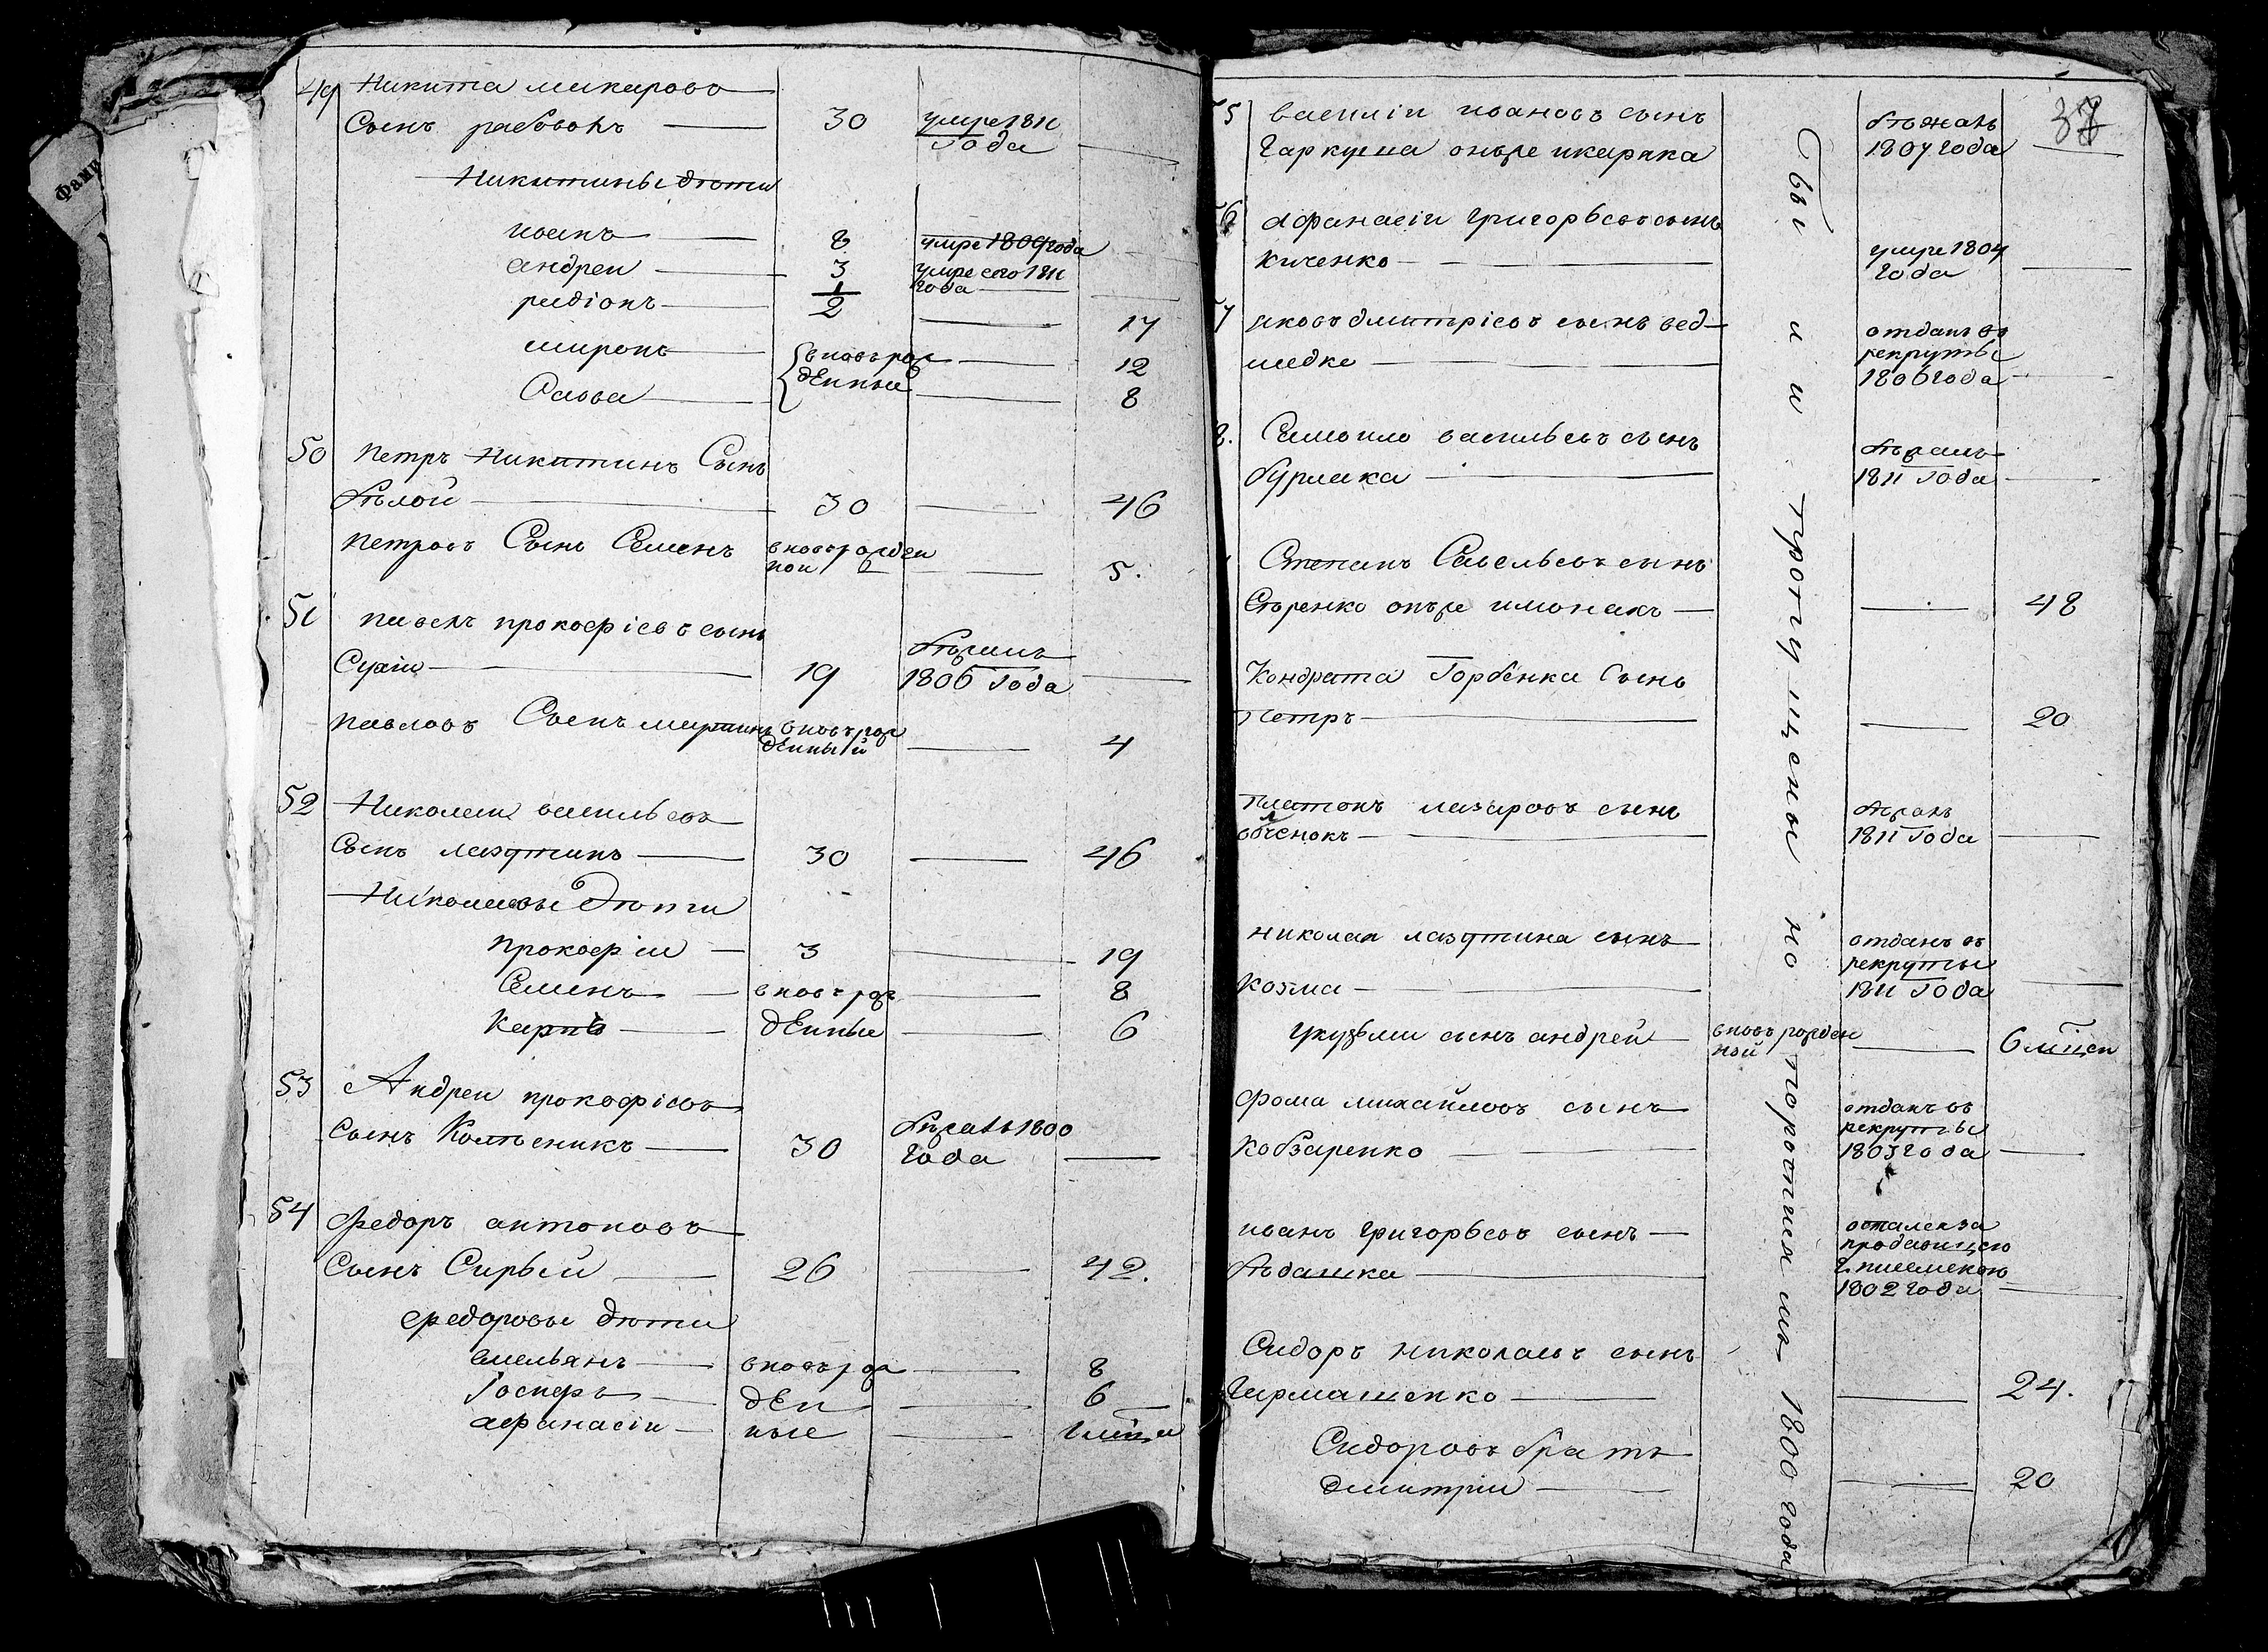 Фами
49 Никита макаровъ
Сынъ 30 умре 1811
Года
Никитины дѣти
иванъ 8 умре 1809 года
андреи 3 умре сего 1811
года
радіонъ 1/2 17
миронъ вновь рож 12
Сава денныи 8
50 Петръ Никитинъ Сынъ
бѣлой 30 46
Петровъ Сынъ Семенъ вновь рожден
нои 5.
51 павелъ прокофіевъ сынъ
Сухіи 19 бѣжалъ
1806 Года
павловъ Сынъ мартинъ вновь рож
денный 4
52 Николаи васильевъ
Сынъ лазутинъ 30 46
Николаевы Дѣти
прокофіи 3 19
Семенъ вновь рож 8
Карпъ денныи 6
53 Андреи прокофіевъ
сынъ Колѣсникъ 30 бѣжалъ 1800
Года
54 федоръ антоновъ
Сынъ Сирыи 26 42.
федоровы дѣти
емельянъ вновь рож 8
ден 6
афанасіи ные
37
55 василіи ивановъ сынъ бѣжалъ
Гаркуша онъже 1807 года
56 Афанасіи григорьевъ сынъ
Киченко умре 1804
года
57 яковъ дмитріевъ сынъ вед отданъ въ
медка рекруты
1806 года
8. Самоило васильевъ сынъ бѣжалъ
бурлака 1811 Года
Степанъ Савельевъ сынъ
онъже 48
Кондрата Горбенка Сынъ
Петръ 20
Платонъ лазаровъ сынъ бѣжалъ
1811 Года
николая лазутина сынъ отданъ въ
рекруты
Козма 1811 Года
укузьмы сынъ андрей вновь рожден
ной 6 мцеи
Фома михайловъ сынъ отданъ въ
рекруты
Кобзаренко 1803 года
иванъ григорьевъ сынъ осталса за
продавицею
1802 года
Сидоръ николаевъ сынъ
Гармашенко 24.
Сидоровъ братъ
дмитріи 20
Сбыли и пропущены по 1800 года